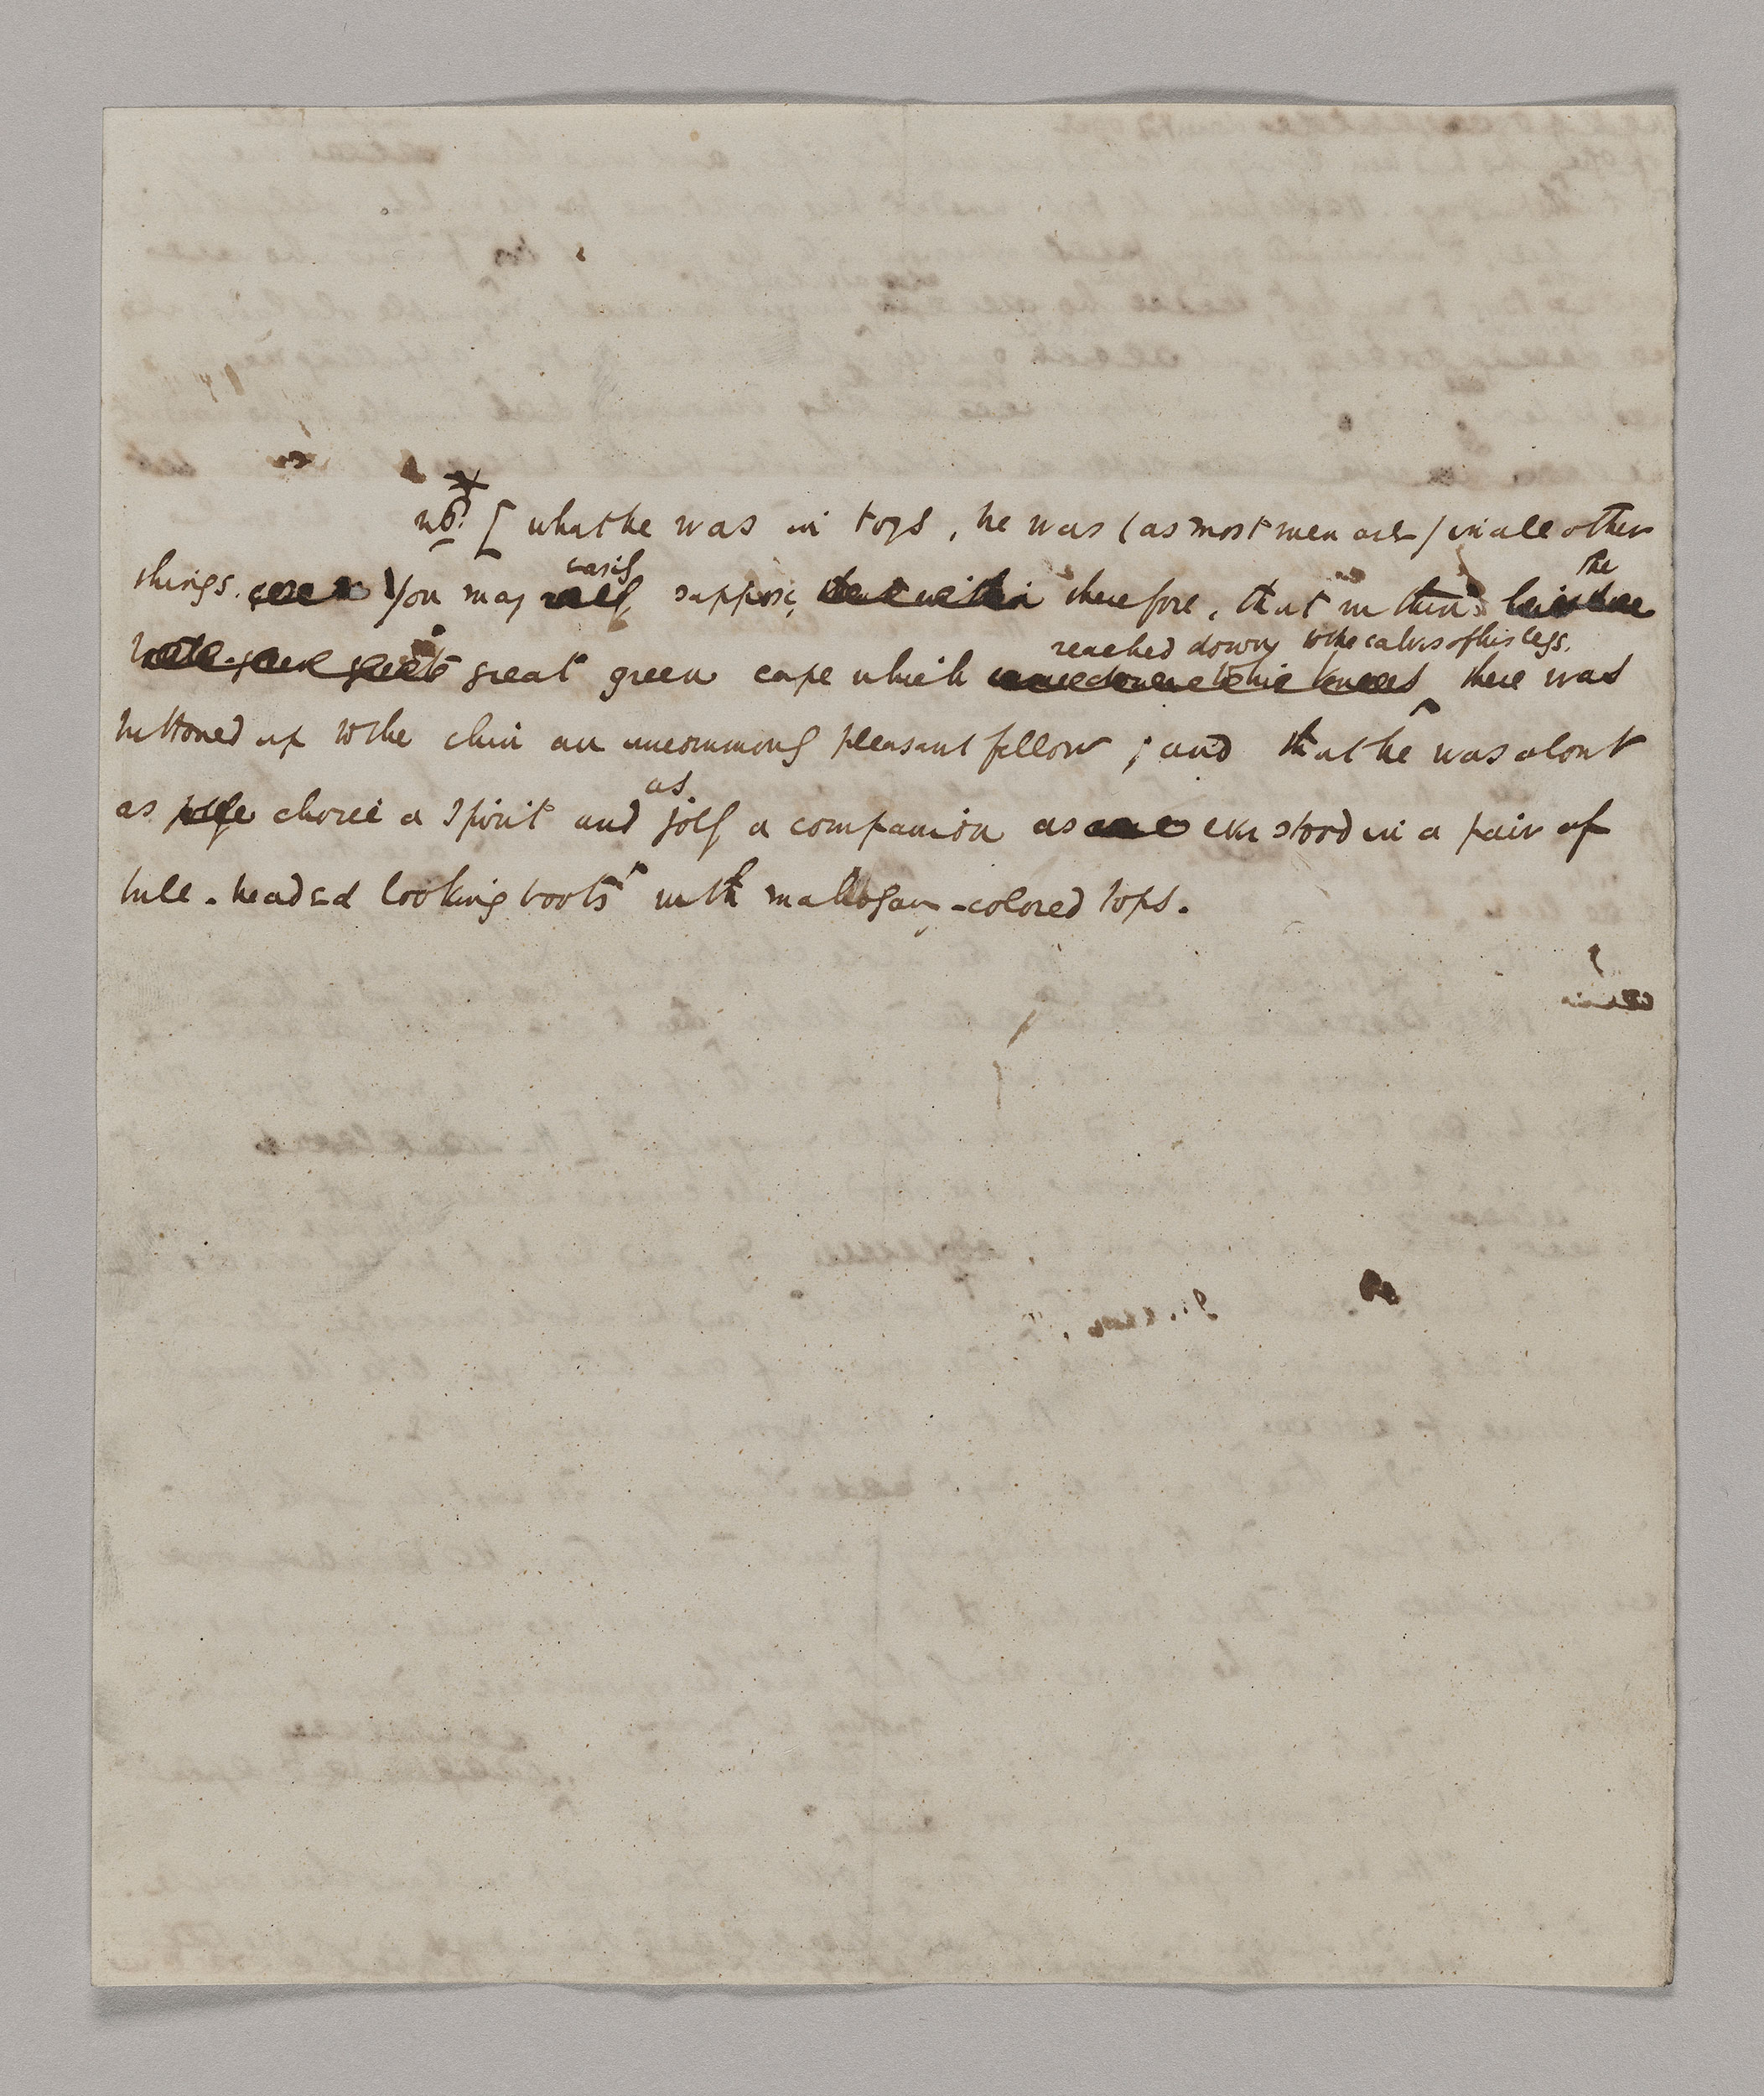 no. [ what he was in toys, he was (as most men are) in all other
things. You may easily suppose, therefore, that within the
great green cape which reached down to the calves of his legs, there was
buttoned up to the chin an uncommonly pleasant fellow; and that he was about
as choice a spirit and as jolly a companion as ever stood in a pair of
bull-headed looking boots with mahogany-colored tops.